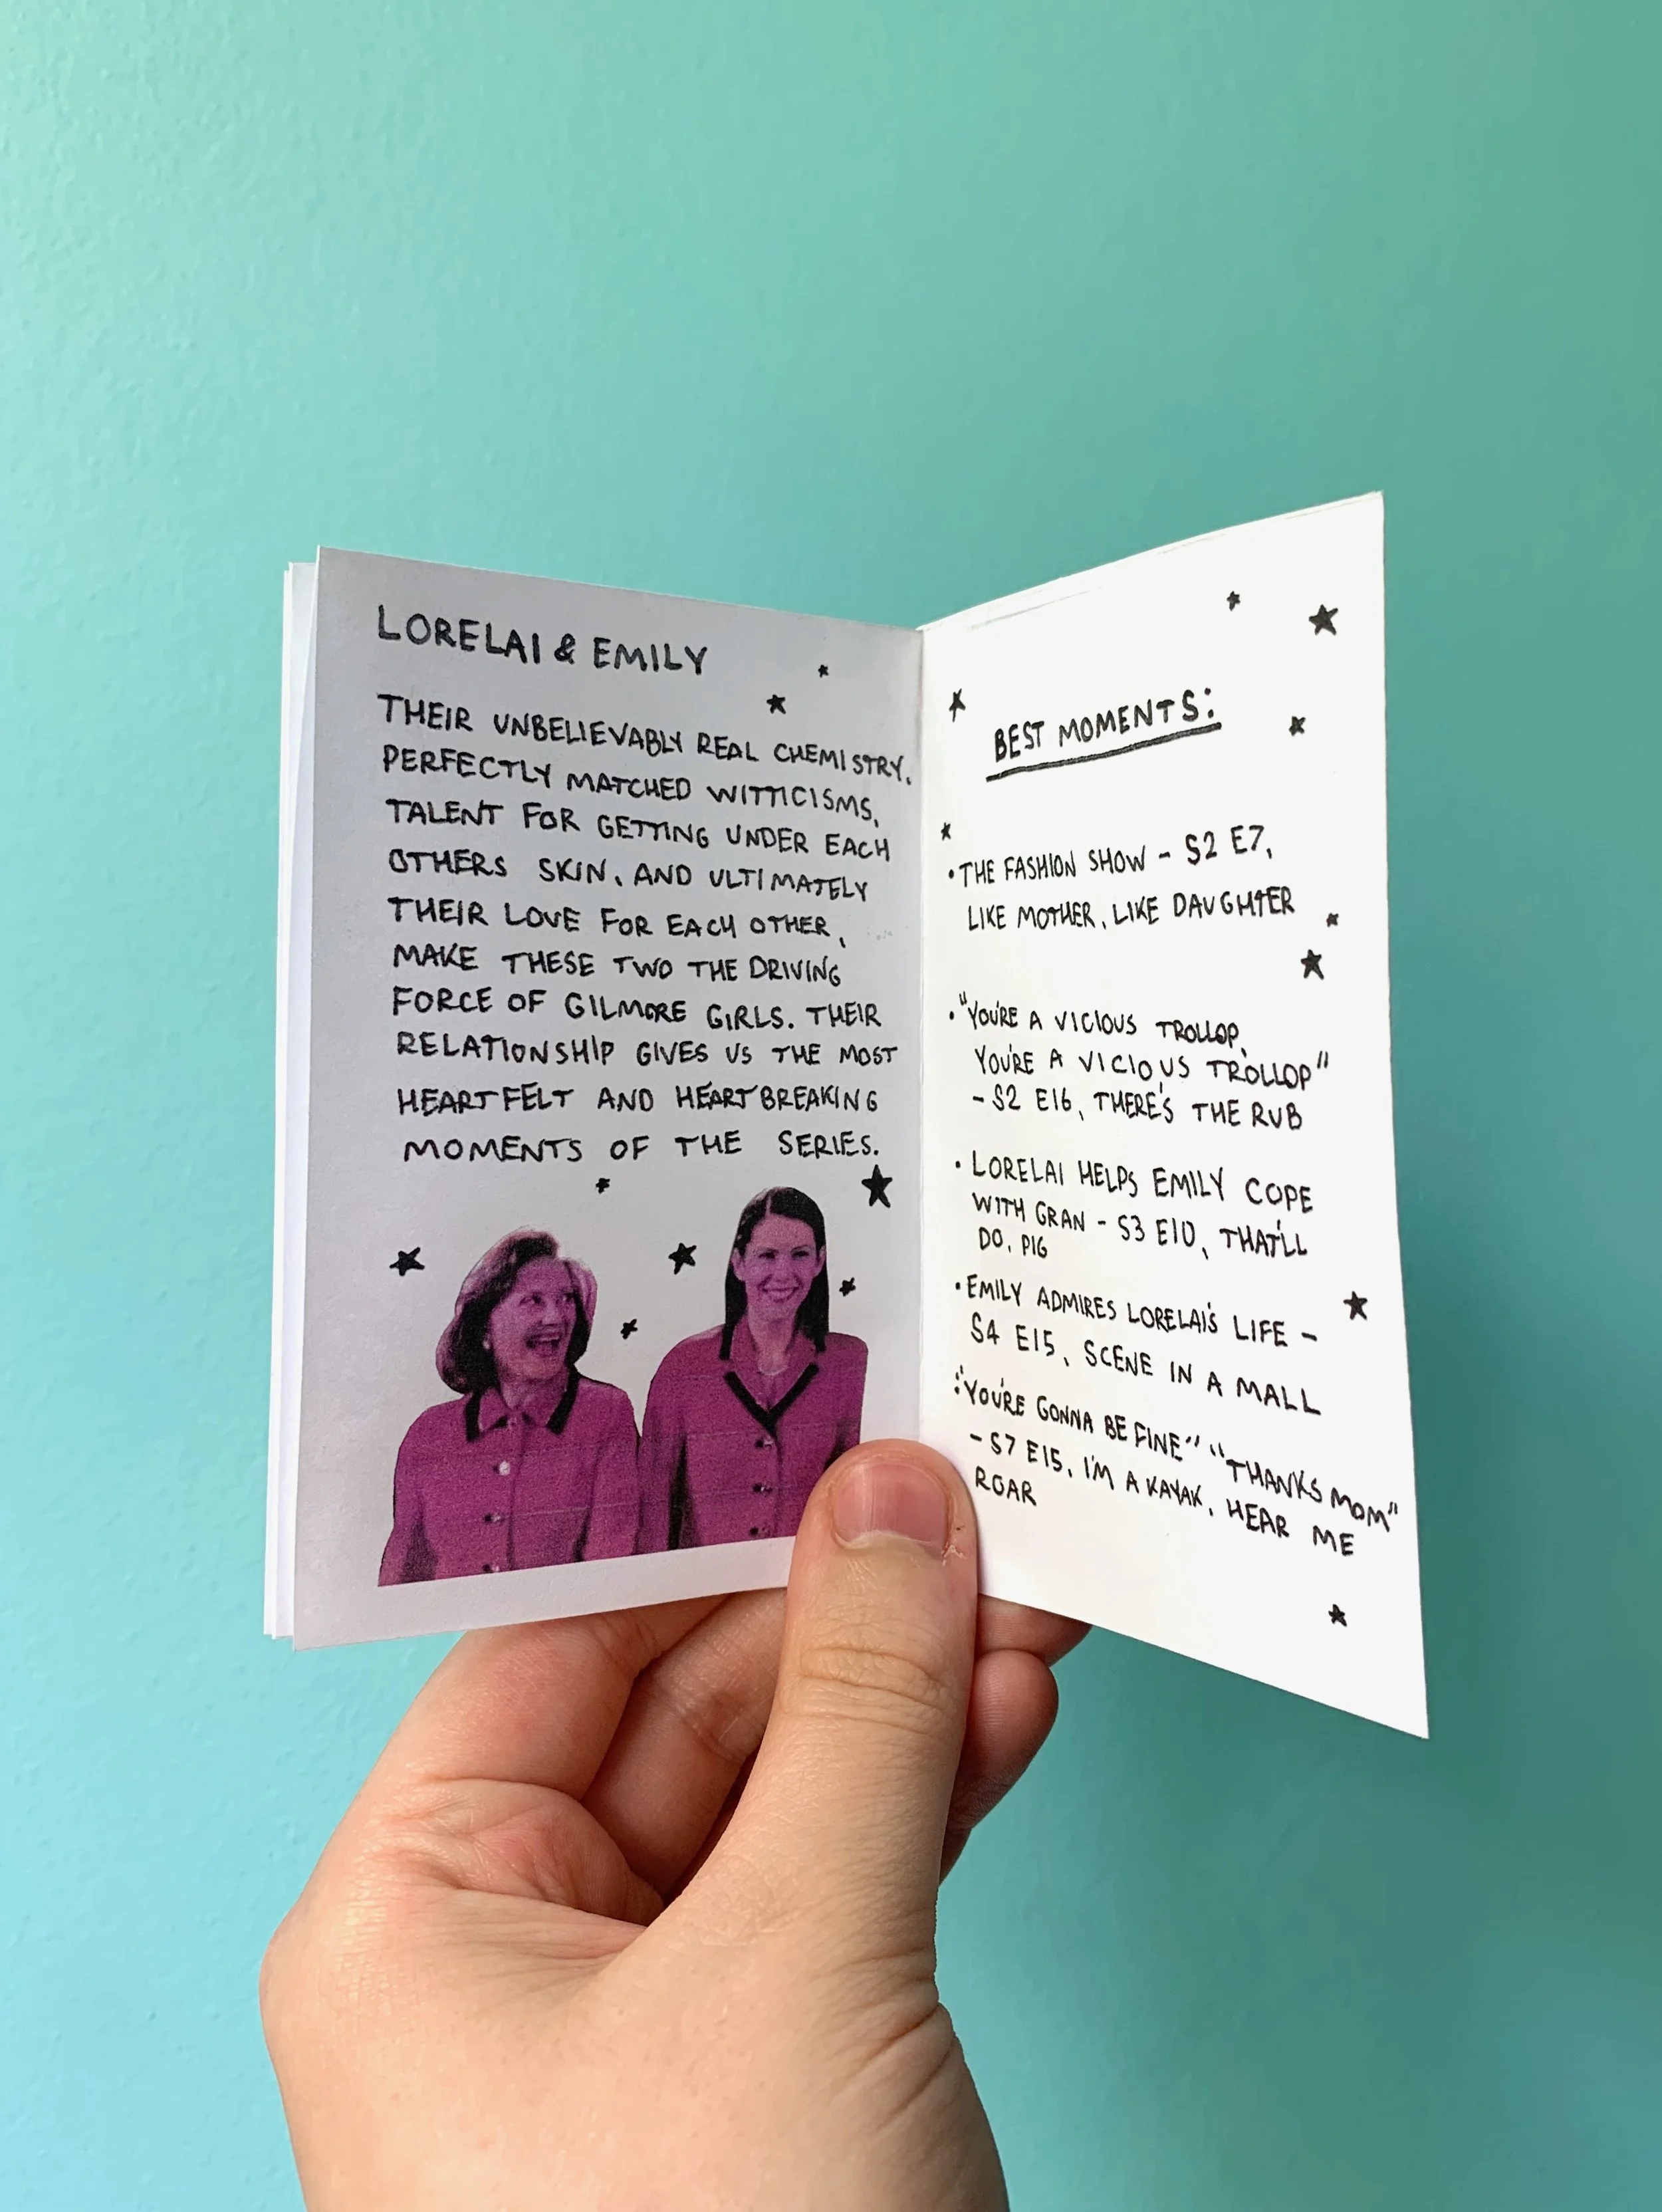 LORELAI & EMILY
THEIR UNBELIEVABLY REAL CHEMISTRY,
PERFECTLY MATCHED WITTICISMS,
TALENT FOR GETTING UNDER EACH
OTHERS SKIN, AND ULTIMATELY
THEIR LOVE FOR EACH OTHER,
MAKE THESE TWO THE DRIVING
FORCE OF GILMORE GIRLS. THEIR
RELATIONSHIP GIVES US THE MOST
HEARTFELT AND HEARTBREAKING
MOMENTS OF THE SERIES.
BEST MOMENTS:
• THE FASHION SHOW - S2 E7,
LIKE MOTHER, LIKE DAUGHTER
• "YOU'RE A VICIOUS TROLLOP,
YOU'RE A VICIOUS TROLLOP"
- S2 E16, THERE'S THE RUB
• LORELAI HELPS EMILY COPE
WITH GRAN - S3 E10, THAT'LL
DO, PIG
• EMILY ADMIRES LORELAI'S LIFE -
S4 E15, SCENE IN A MALL
• "YOU'RE GONNA BE FINE" "THANKS MOM"
- S7 E15, I'M A KAYAK, HEAR ME
ROAR